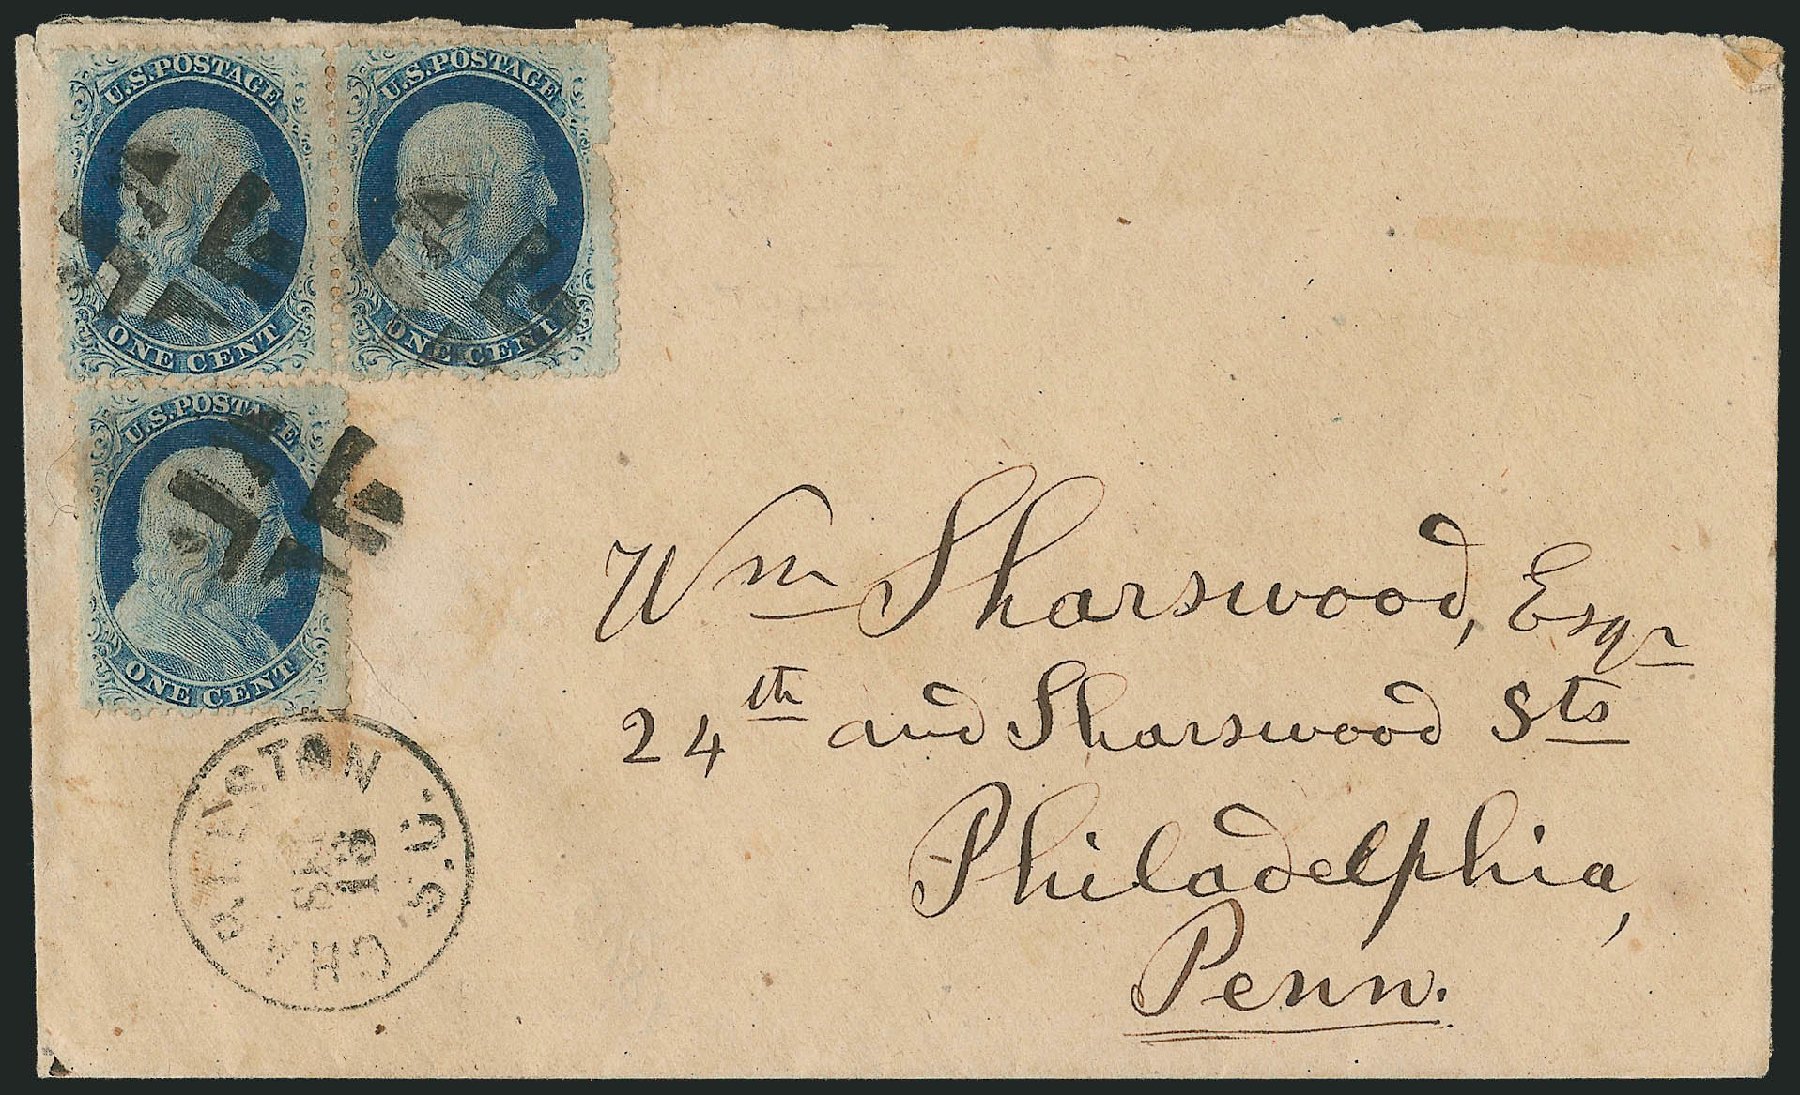 U.S. POSTAGE
ONE CENT
U.S. POSTAGE
ONE CENT
U.S. POSTAGE
ONE CENT
CHARLESTON S.C.
18
Wm Sharswood, Esqr
24th and Sharswood Sts
Philadelphia,
Penn.